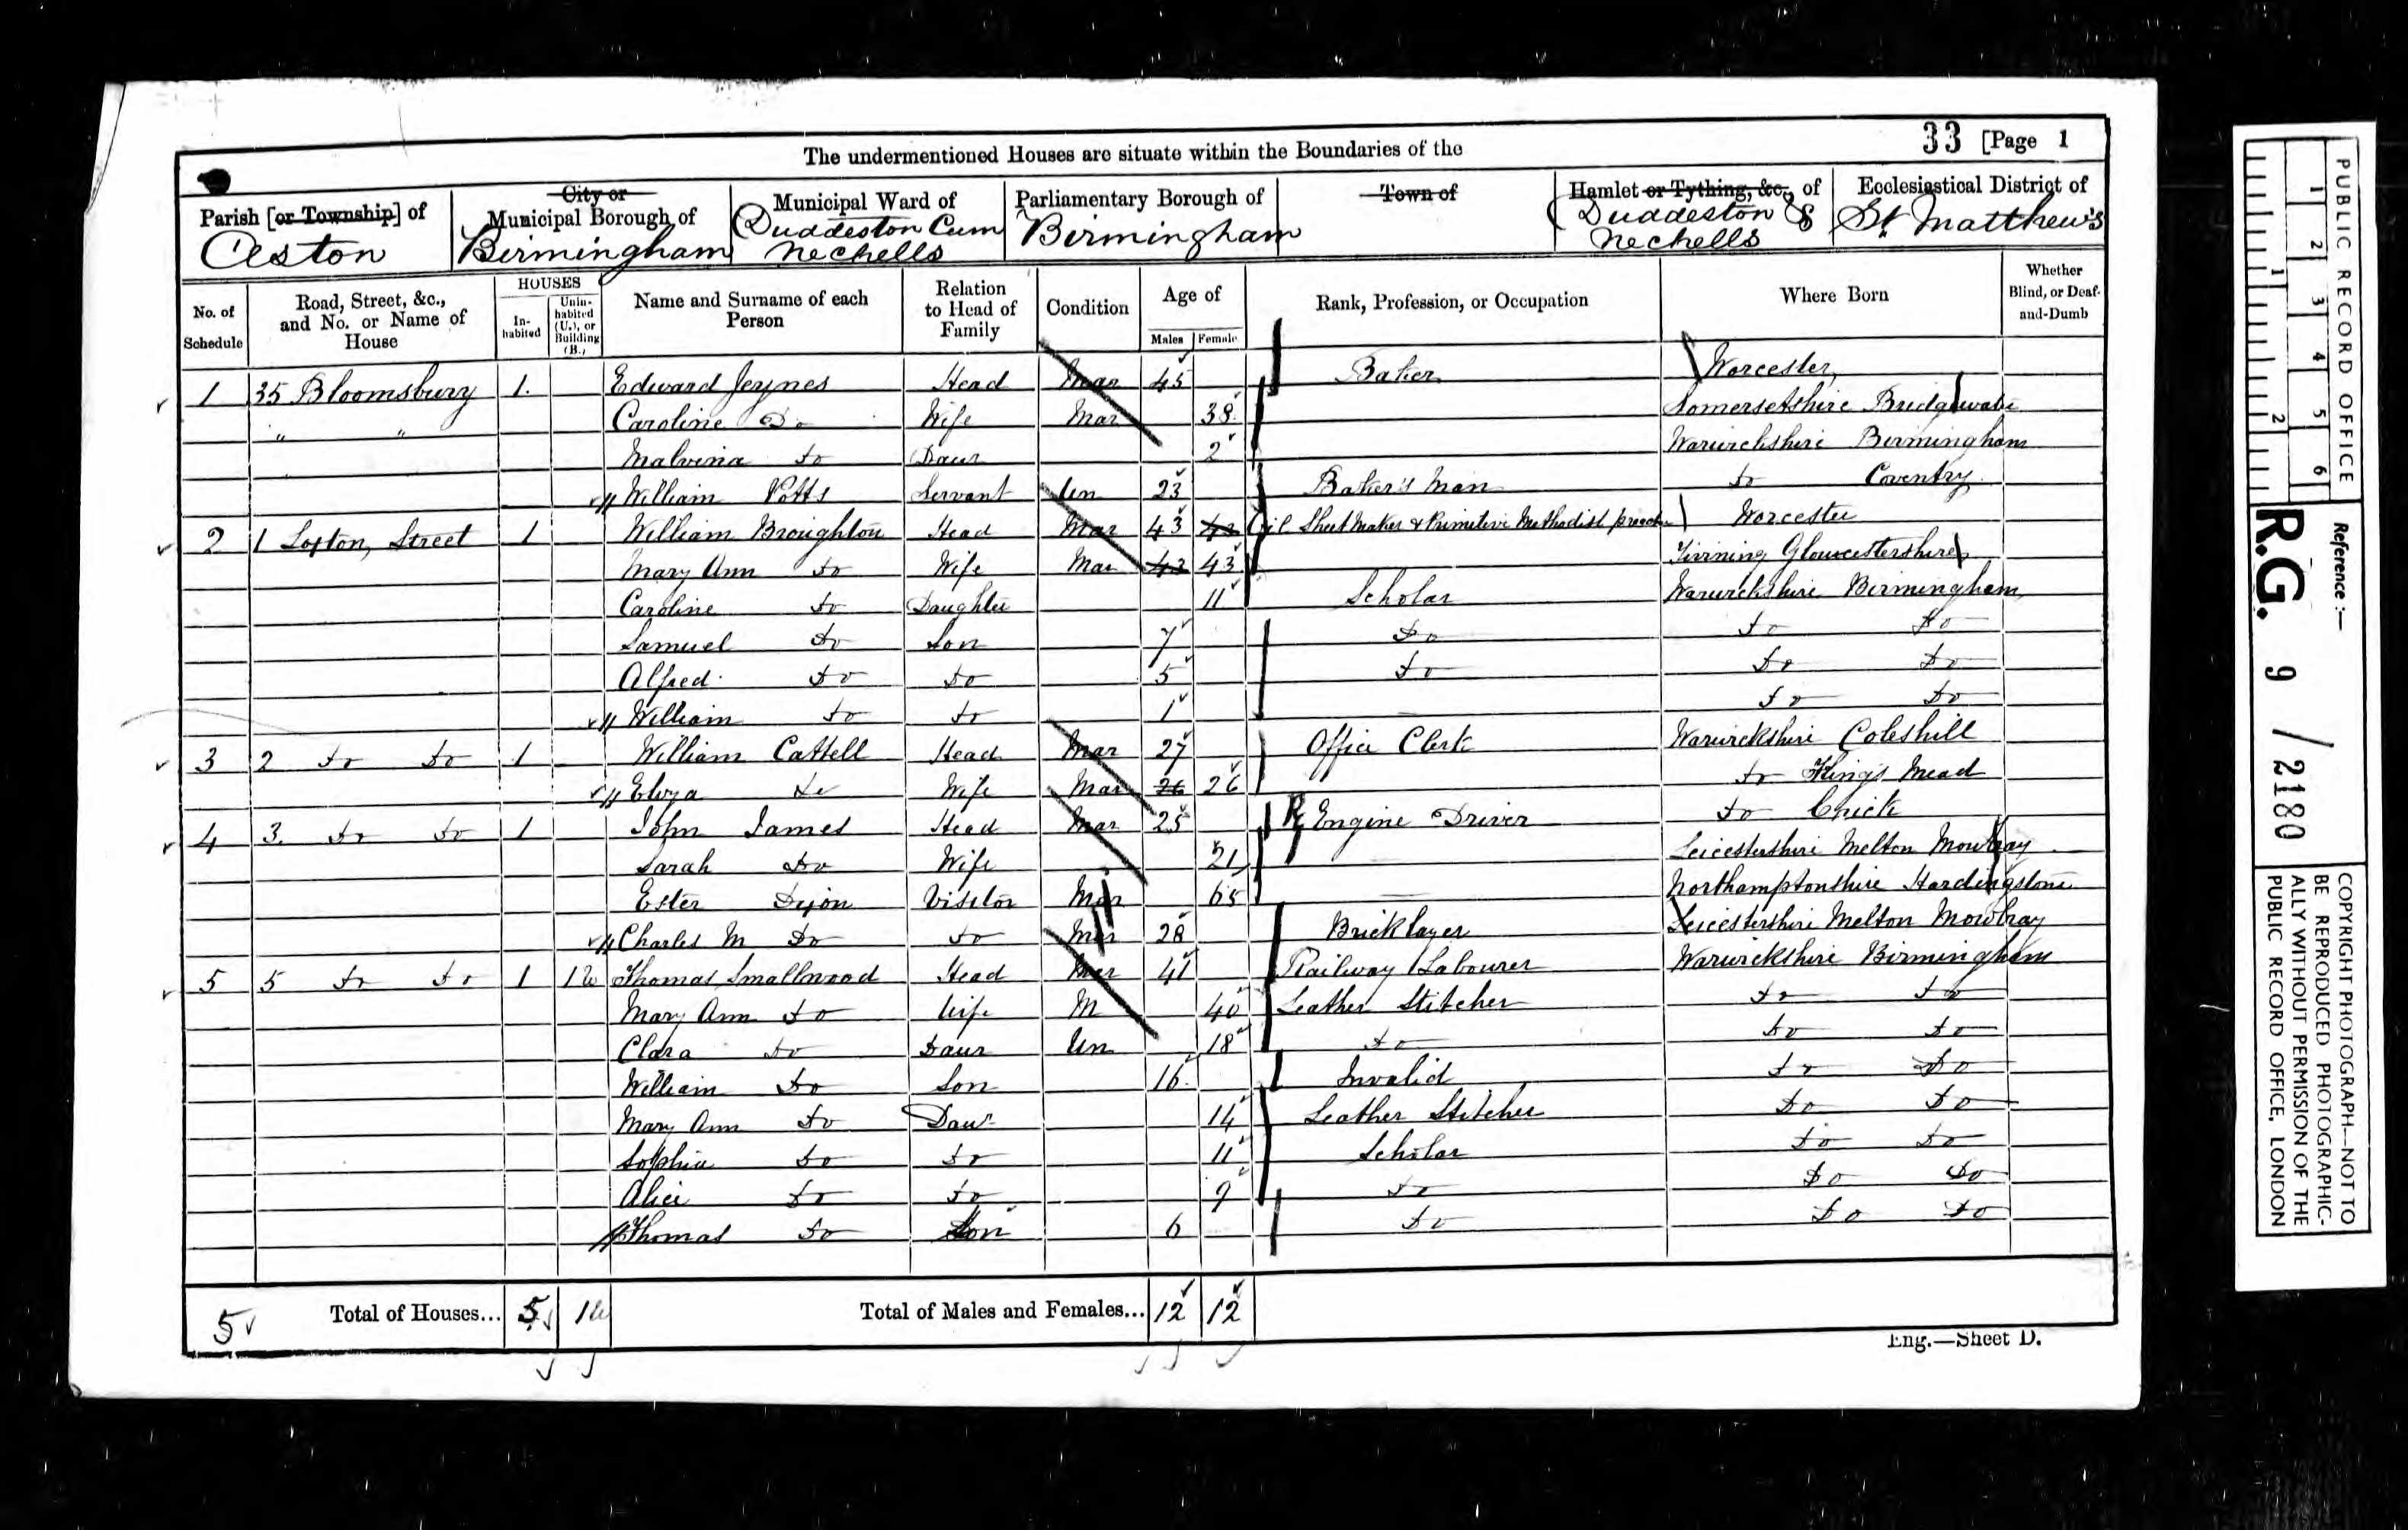 33 [Page 1
The undermentioned Houses are situate within the Boundaries of the
Parish [or Township] of Aston
City or Municipal Borough of Birmingham
Municipal Ward of Duddeston Cum Nechells
Parliamentary Borough of Birmingham
Town of
Hamlet or Tything, &c., of Duddeston & Nechells
Ecclesiastical District of St. Matthew's
No. of Schedule
Road, Street, &c., and No. or Name of House
HOUSES
In-habited
Unin-habited (U.), or Building (B.)
Name and Surname of each Person
Relation to Head of Family
Condition
Age of
Males Females
Rank, Profession, or Occupation
Where Born
Whether Blind, or Deaf-and-Dumb
1 35 Bloomsbury 1. Edward Jeynes Head Mar 45 Baker Worcester,
" " Caroline Do Wife Mar 38 Somersetshire
Malvina do Daur 2 Warwickshire Birmingham
William Potts Servant Un 23 Baker's Man do Coventry
2 1 Street 1 William Broughton Head Mar 43 42 Sheet Maker & Primitive Methodist Worcester
Mary Ann do Wife Mar 42 43 Gloucestershire
Caroline do Daughter 11 Scholar Warwickshire Birmingham
Samuel do Son 7 Do do do
Alfred do do 5 do do do
William do do 1 do do
3 2 do do 1 William Cattell Head Mar 27 Office Clerk Warwickshire Coleshill
Eliza do Wife Mar 26 26 do Kings Mead
4 3. do do 1 John James Head Mar 25 Engine Driver do Crick
Sarah do Wife 21 Leicestershire Melton Mowbray
Ester Visitor Mar 65 Northamptonshire Hardingstone
Charles M Do do Mar 28 Bricklayer Leicestershire Melton Mowbray
5 5 do do 1 1 Thomas Smallwood Head Mar 41 Railway Labourer Warwickshire Birmingham
Mary Ann do Wife M 40 Leather Stitcher do do
Clara do Daur Un 18 do do do
William do Son 16 Invalid do do
Mary Ann do Daur 14 Leather Stitcher do do
Sophia do do 11 Scholar do do
Alice do do 9 do do do
Thomas do Son 6 do do do
5 Total of Houses... 5 1 Total of Males and Females... 12 12
Eng.—Sheet D.
PUBLIC RECORD OFFICE
1 2 3 4 5 6
1 2
Reference:—
R.G. 9 / 2180
COPYRIGHT PHOTOGRAPH—NOT TO
BE REPRODUCED PHOTOGRAPHIC-
ALLY WITHOUT PERMISSION OF THE
PUBLIC RECORD OFFICE, LONDON